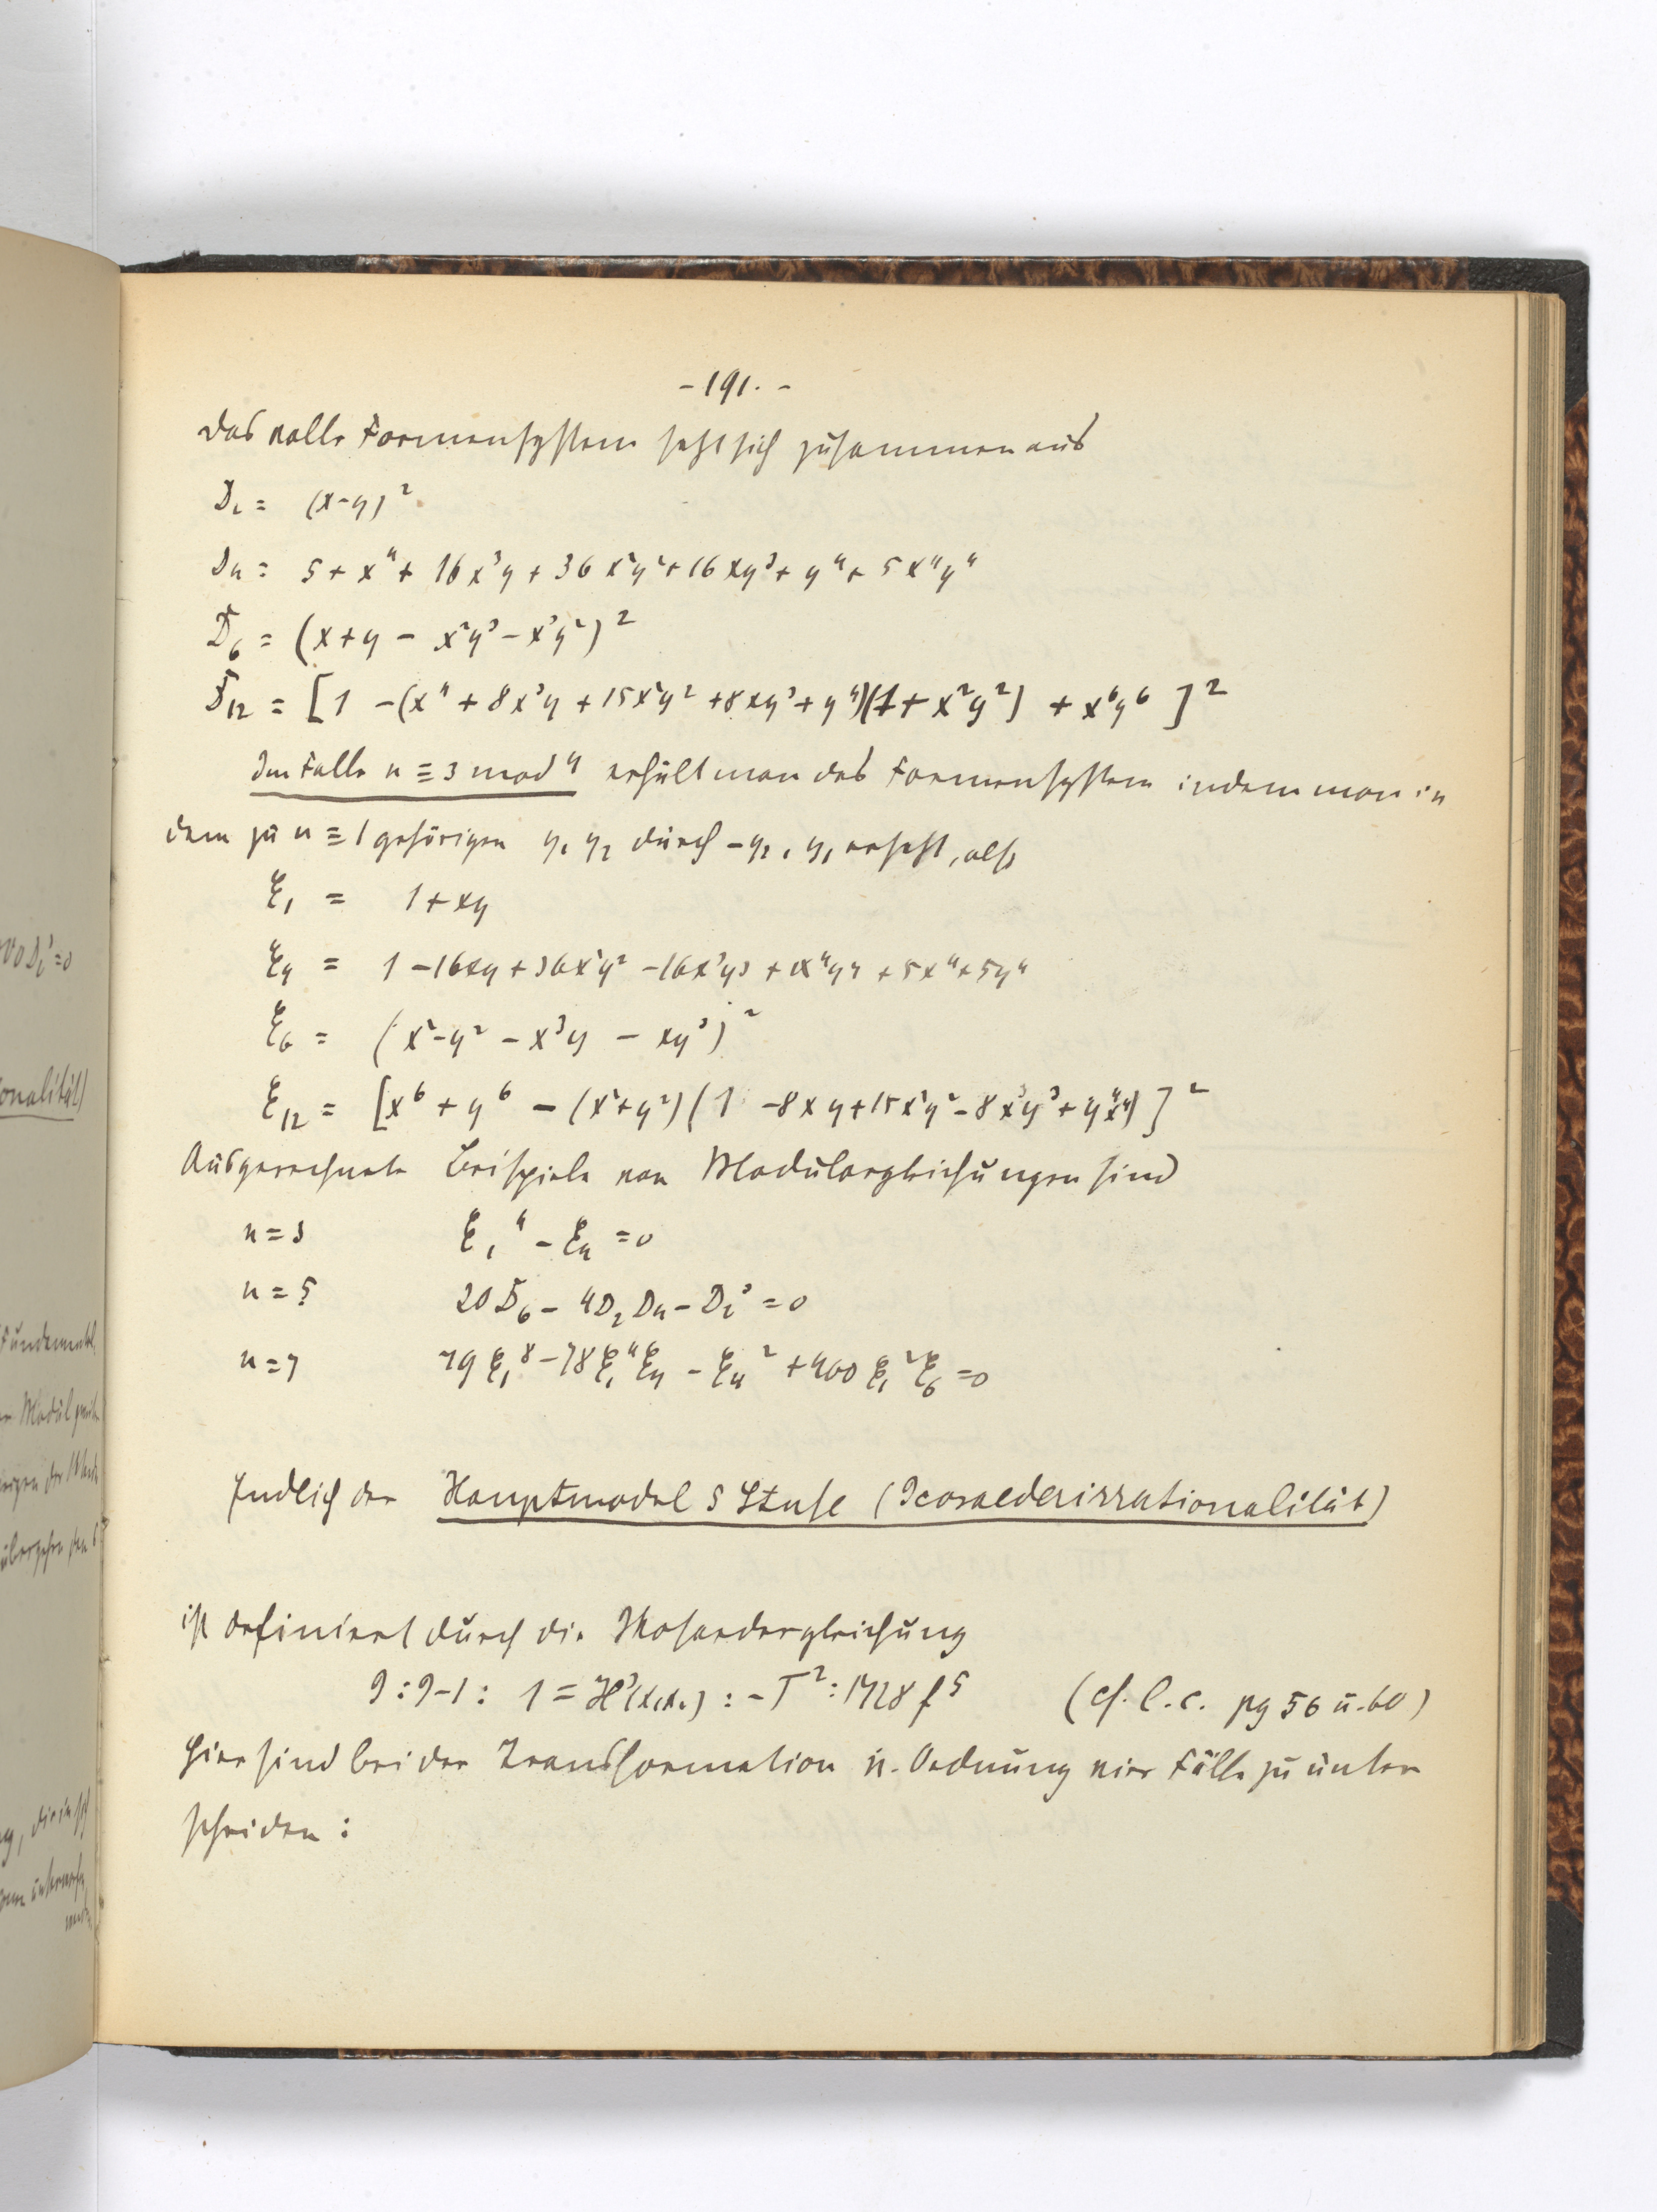 VOD₂³=0
onalität)
Fundamental
- 191. -
Das volle Formensystem setzt sich zusammen aus
D₂ = (x-y)²
D₄ = 5 + x⁴ + 16x³y + 36x²y² + 16xy³ + y⁴ + 5x⁴y⁴
D₆ = (x+y - x²y³ - x³y²)²
D₁₂ = [1 - (x⁴ + 8x³y + 15x²y² + 8xy³ + y⁴)(1 + x²y²) + x⁶y⁶]²
Im Falle n ≡ 3 mod 4 erhält man das Formensystem indem man in
dem zu n ≡ 1 gehörigen y₁ y₂ durch -y₂, y₁ ersetzt, also
ξ₁ = 1+xy
ξ₄ = 1 - 16xy + 36x²y² - 16x³y³ + x⁴y⁴ + 5x⁴ + 5y⁴
ξ₆ = (x²-y² - x³y - xy³)²
ξ₁₂ = [x⁶ + y⁶ - (x²+y²)(1 - 8xy + 15x²y² - 8x³y³ + y⁴x⁴)]²
Ausgerechnete Beispiele von Modulargleichungen sind
n = 3 ξ₁⁴ - ξ₄ = 0
n = 5 20D₆ - 4D₂D₄ - D₂³ = 0
n = 7 79ξ₁⁸ - 78ξ₁⁴ξ₄ - ξ₄² + 400ξ₁²ξ₆ = 0
Endlich der Hauptmodul 5 Stufe (Icosaederirrationalität)
ist definiert durch die Ikosaedergleichung
J : J-1 : 1 = H³(x₁x₂) : -T² : 1728 f⁵ (cf. l. c. pg 56 u. 60)
Hier sind bei der Transformation n. Ordnung vier Fälle zu unter
scheiden :